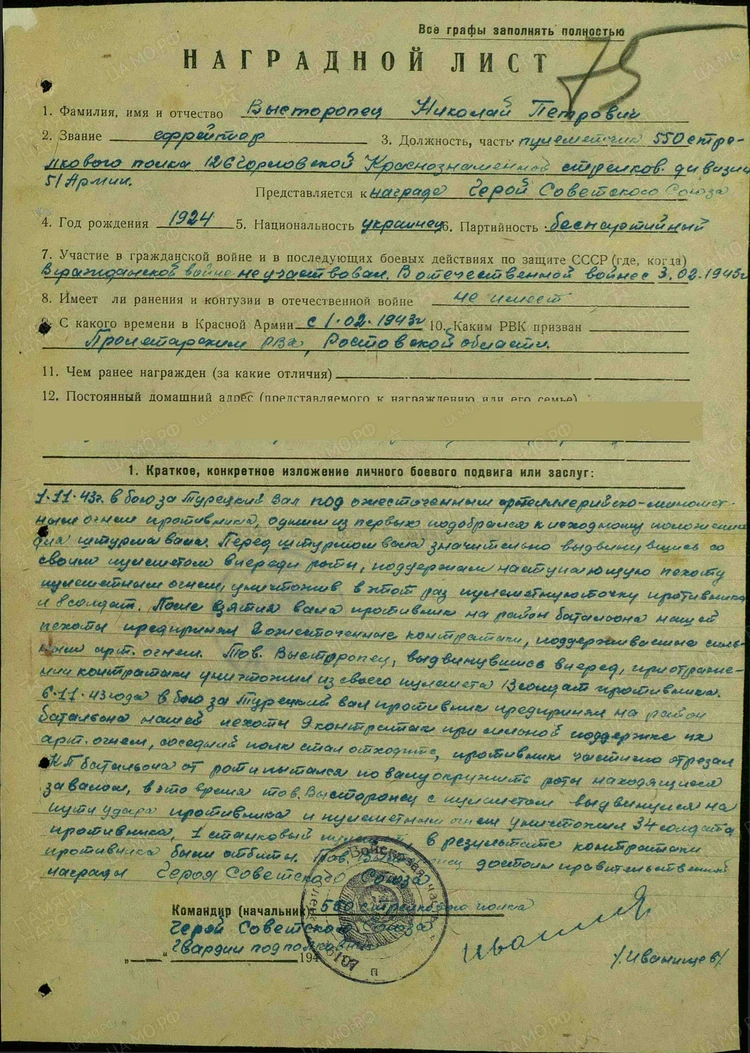 Все графы заполнять полностью
75
НАГРАДНОЙ ЛИСТ
1. Фамилия, имя и отчество Высторопец Николай Петрович
2. Звание ефрейтор 3. Должность, часть пулеметчик 550 стре-
лкового полка 126 Горловской Краснознаменной стрелков. дивизии
51 Армии.
Представляется к награде Герой Советского Союза
4. Год рождения 1924 5. Национальность украинец 6. Партийность беспартийный
7. Участие в гражданской войне и в последующих боевых действиях по защите СССР (где, когда)
В гражданской войне не участвовал. В отечественной войне с 3.02.1943г
8. Имеет ли ранения и контузии в отечественной войне не имеет
9. С какого времени в Красной Армии с 1.02.1943г 10. Каким РВК призван
Пролетарским РВК, Ростовской области.
11. Чем ранее награжден (за какие отличия)
12. Постоянный домашний адрес (представляемого к награждению или его семье)
1. Краткое, конкретное изложение личного боевого подвига или заслуг:
1.11.43г. в бою за Турецкий Вал под ожесточенным артиллерийско-миномет-
ным огнем противника, одним из первых подобрался к исходному положению
для штурма вала. Перед штурмом вала значительно выдвинувшись со
своим пулеметом впереди роты, поддержал наступающую пехоту
пулеметным огнем, уничтожив в этот раз пулеметную точку противника
и 8 солдат. После взятия вала противник на район батальона нашей
пехоты предпринял 2 ожесточенные контратаки, поддерживаемые силь-
ным арт. огнем. Тов. Высторопец, выдвинувшись вперед, при отраже-
нии контратаки уничтожил из своего пулемета 13 солдат противника.
6.11.43 года в бою за Турецкий вал противник предпринял на район
батальона нашей пехоты 9 контратак при сильной поддержке их
арт. огнем, соседний полк стал отходить, противник частично отрезал
КП батальона от рот и пытался по валу окружить роты находящиеся
за валом, в это время тов. Высторопец с пулеметом выдвинулся на
пути удара противника и пулеметным огнем уничтожил 34 солдата
противника, 1 станковый в результате контратаки
противника были отбиты. Тов. достоин правительственной
награды Героя Советского Союза
Командир (начальник) 550 стрелкового полка
Герой Советского Союза
Гвардии подполковник
"__"______194 /Иванищев/